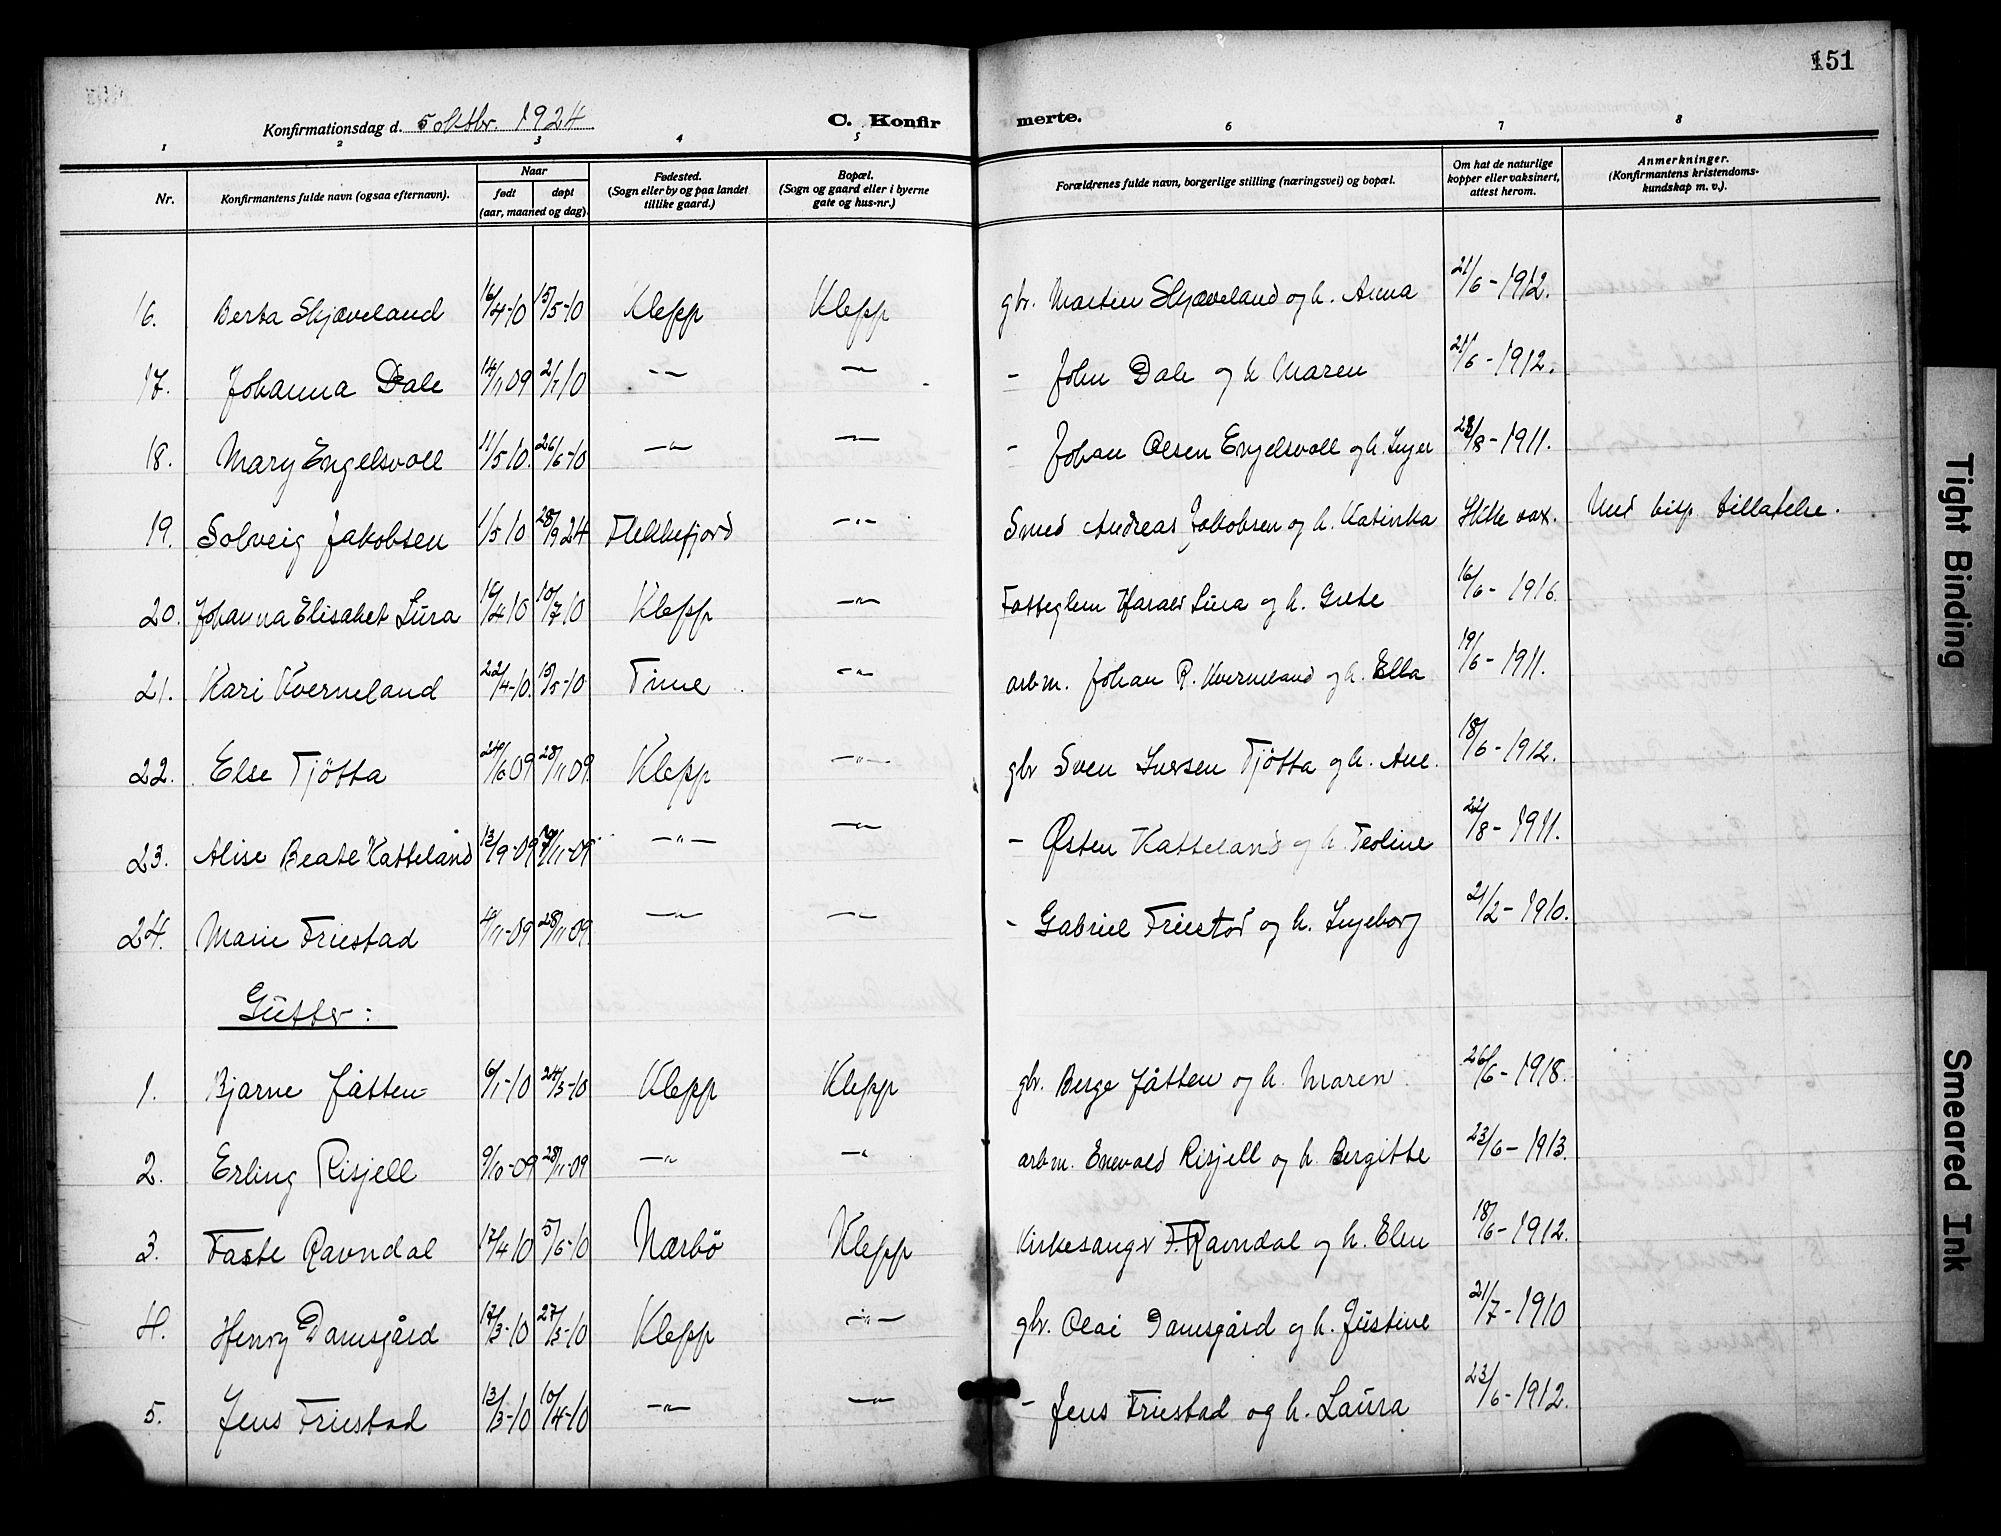 151
Konfirmationsdag d. 5 oktbr. 1924. C. Konfirmerte.
1 2 3 4 5 6 7 8
Nr. Konfirmantens fulde navn (ogsaa efternavn). Naar født døpt (aar, maaned og dag) Fødested. (Sogn eller by og paa landet tillike gaard.) Bopæl. (Sogn og gaard eller i byerne gate og hus-nr.) Forældrenes fulde navn, borgerlige stilling (næringsvei) og bopæl. Om hat de naturlige kopper eller vaksinert, attest herom. Anmerkninger. (Konfirmantens kristendomskundskap m. v.).
16. Berta Skjæveland 16/4-10 15/5-10 Klepp Klepp gbr. Martin Skjæveland og h. Anna 21/6-1912.
17. Johanna Dale 14/11 09 2/1 10 -"- -"- - John Dale og h Maren 21/6-1912.
18. Mary Engelsvoll 11/5-10. 26/6-10 -"- -"- - Johan Olsen Engelsvoll og h. Inger /8-1911.
19. Solveig Jakobsen 1/5 10 28/9 24 Flekkefjord -"- Smed Andreas Jakobsen og h. Katinka Ikke vax. Med bisp. tillatelse.
20. Johanna Elisabet Lura /4 10 10/7 10 Klepp -"- Harald Lura og h. Grete 16/6-1916.
21. Kari Kverneland 22/4-10. 15/5-10 Time -"- arbm. Johan R. Kverneland og h. Ella 19/6-1911.
22. Else Tjötta 24/6 09 28/11 09 Klepp -"- gbr Sven Iversen Tjötta og h. Ane. 18/6-1912.
23. Alise Beate Katteland 13/9-09 /11-09 -"- -"- - Østen Katteland og h. Teoline 22/8-1911.
24. Marie Friestad 4/11-09 28/11-09. -"- -"- - Gabriel Friestad og h. Ingeborg 21/2-1910.
Gutter:
1. Bjarne Jåtten 6/1-10 24/3-10 Klepp Klepp gbr. Berge Jåtten og h. Maren 26/6-1918.
2. Erling Risjell 9/10-09 28/11-09 -"- -"- arbm. Enevald Risjell og h. Bergitte 23/6-1913.
3. Faste Ravndal 17/4 10 5/6-10 Nærbö Klepp Kirkesanger F. Ravndal og h. Elen 18/6-1912.
4. Henry Damsgård 17/3-10 27/3-10 Klepp -"- gbr. Olai Damsgård og h. Justine 21/7-1910
5. Jens Friestad 13/3-10 10/4-10 -"- -"- - Jens Friestad og h. Laura 23/6-1912.
Tight Binding
Smeared Ink